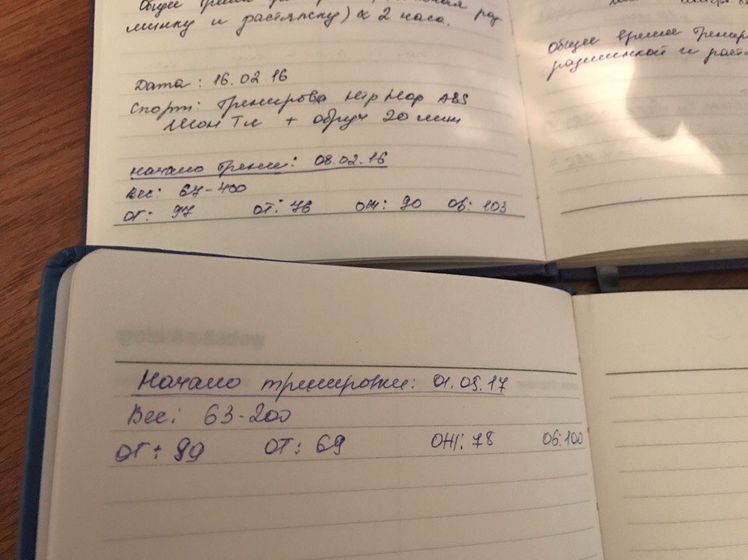 Общее время
минку и растяжку) ≈ 2 часа.
Общее время трениро
разминкой и раст
Дата: 16.02 16
Спорт: Тренирова Hip Hop ABS
Шон Ти + обруч 20 мин
Начало трени: 08.02.16
Вес: 67-400
ОГ: 97 ОТ: 76 ОЖ: 90 Об: 103
Начало тренировки: 01.05.17
Вес: 63-200
ОГ: 90 ОТ: 69 ОЖ: 78 Об: 100